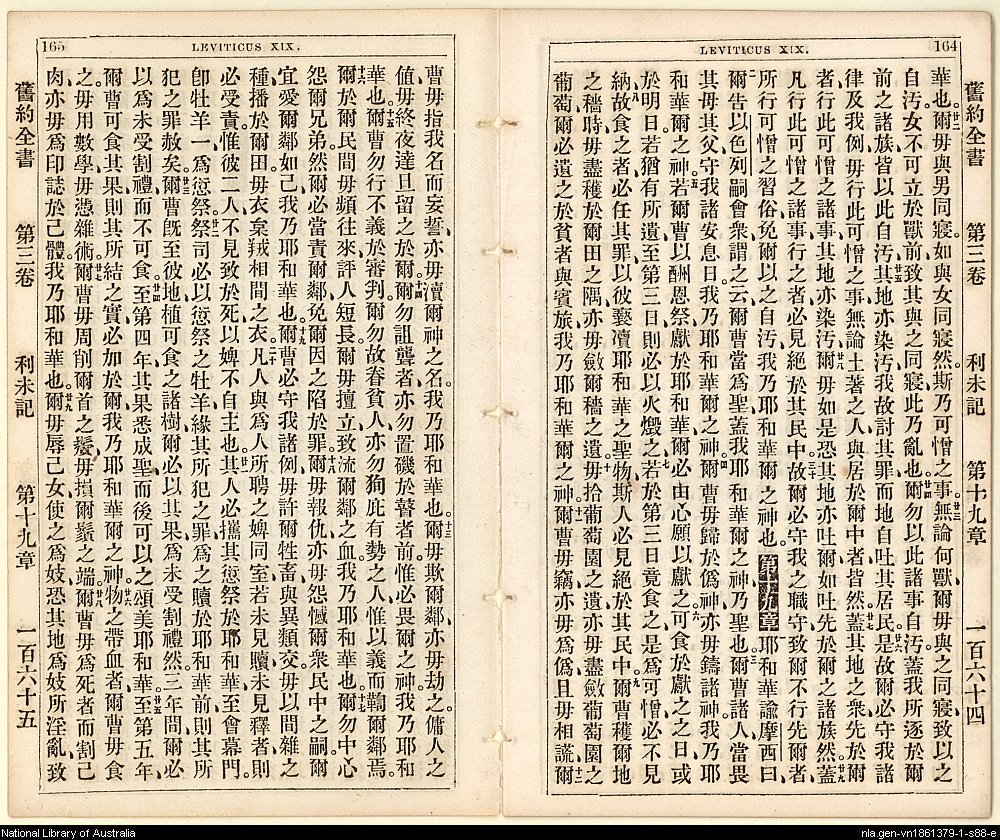 164
LEVITICUS XIX.
舊約全書 第三卷 利未記 第十九章 一百六十四
華也。廿二爾毋與男同寢如與女同寢然斯乃可憎之事。廿三無論何獸爾毋與之同寢致以之
自汚女不可立於獸前致其與之同寢此乃亂也。廿四爾勿以此諸事自汚蓋我所逐於爾
前之諸族皆以此自汚。廿五其地亦染汚我故討其罪而地自吐其居民。廿六是故爾必守我諸
律及我例毋行此可憎之事無論土著之人與居於爾中者皆然。廿七蓋其地之衆先於爾
者行此可憎之諸事其地亦染汚。廿八爾毋如是恐其地亦吐爾如吐先於爾之諸族然。廿九蓋
凡行此可憎之諸事行之者必見絕於其民中。三十故爾必守我之職守致爾不行先爾者
所行可憎之習俗免爾以之自汚我乃耶和華爾之神也。第十九章一耶和華諭摩西曰
二爾告以色列嗣會衆謂之云爾曹當爲聖蓋我耶和華爾之神乃聖也。三爾曹諸人當畏
其毋其父守我諸安息日我乃耶和華爾之神。四爾曹毋歸於僞神亦毋鑄諸神我乃耶
和華爾之神。五若爾曹以酬恩祭獻於耶和華爾必由心願以獻之。六可食於獻之之日或
於明日若猶有所遺至第三日則必以火燬之。七若於第三日竟食之是爲可憎必不見
納。八故食之者必任其罪以彼褻瀆耶和華之聖物斯人必見絕於其民中。九爾曹穫爾地
之穡時毋盡穫於爾田之隅亦毋斂爾穡之遺。十毋拾葡萄園之遺亦毋盡斂葡萄園之
葡萄爾必遺之於貧者與賓旅我乃耶和華爾之神。十一爾曹毋竊亦毋爲僞且毋相謊。十二爾
165
LEVITICUS XIX.
曹毋指我名而妄誓亦毋瀆爾神之名我乃耶和華也。十三爾毋欺爾鄰亦毋劫之傭人之
値毋終夜達旦留之於爾。十四爾勿詛聾者亦勿置磯於瞽者前惟必畏爾之神我乃耶和
華也。十五爾曹勿行不義於審判爾勿故眷貧人亦勿狥庇有勢之人惟以義而鞫爾鄰焉。
十六爾於爾民間毋頻往來評人短長爾毋擅立致流爾鄰之血我乃耶和華也。十七爾勿中心
怨爾兄弟然爾必當責爾鄰免爾因之陷於罪。十八爾毋報仇亦毋怨憾爾衆民中之嗣爾
宜愛爾鄰如己我乃耶和華也。十九爾曹必守我諸例毋許爾牲畜與異類交毋以間雜之
種播於爾田毋衣枲羢相間之衣。二十凡人與爲人所聘之婢同室若未見贖未見釋者則
必受責惟彼二人不見致於死以婢不自主也。廿一其人必攜其愆祭於耶和華至會幕門
卽牡羊一爲愆祭。廿二祭司必以愆祭之牡羊緣其所犯之罪爲之贖於耶和華前則其所
犯之罪赦矣。廿三爾曹旣至彼地植可食之諸樹爾必以其果爲未受割禮然三年間爾必
以爲未受割禮而不可食。廿四至第四年其果悉成聖而後可以之頌美耶和華。廿五至第五年
爾曹可食其果則其所結之實必加於爾我乃耶和華爾之神。廿六物之帶血者爾曹毋食
之毋用數學毋憑雜術。廿七爾曹毋周削爾首之鬢毋損爾鬚之端。廿八爾曹毋爲死者而割己
肉亦毋爲印誌於己體我乃耶和華也。廿九爾毋辱己女使之爲妓恐其地爲妓所淫亂致
舊約全書 第三卷 利未記 第十九章 一百六十五
National Library of Australia
nla.gen-vn1861379-1-s88-e